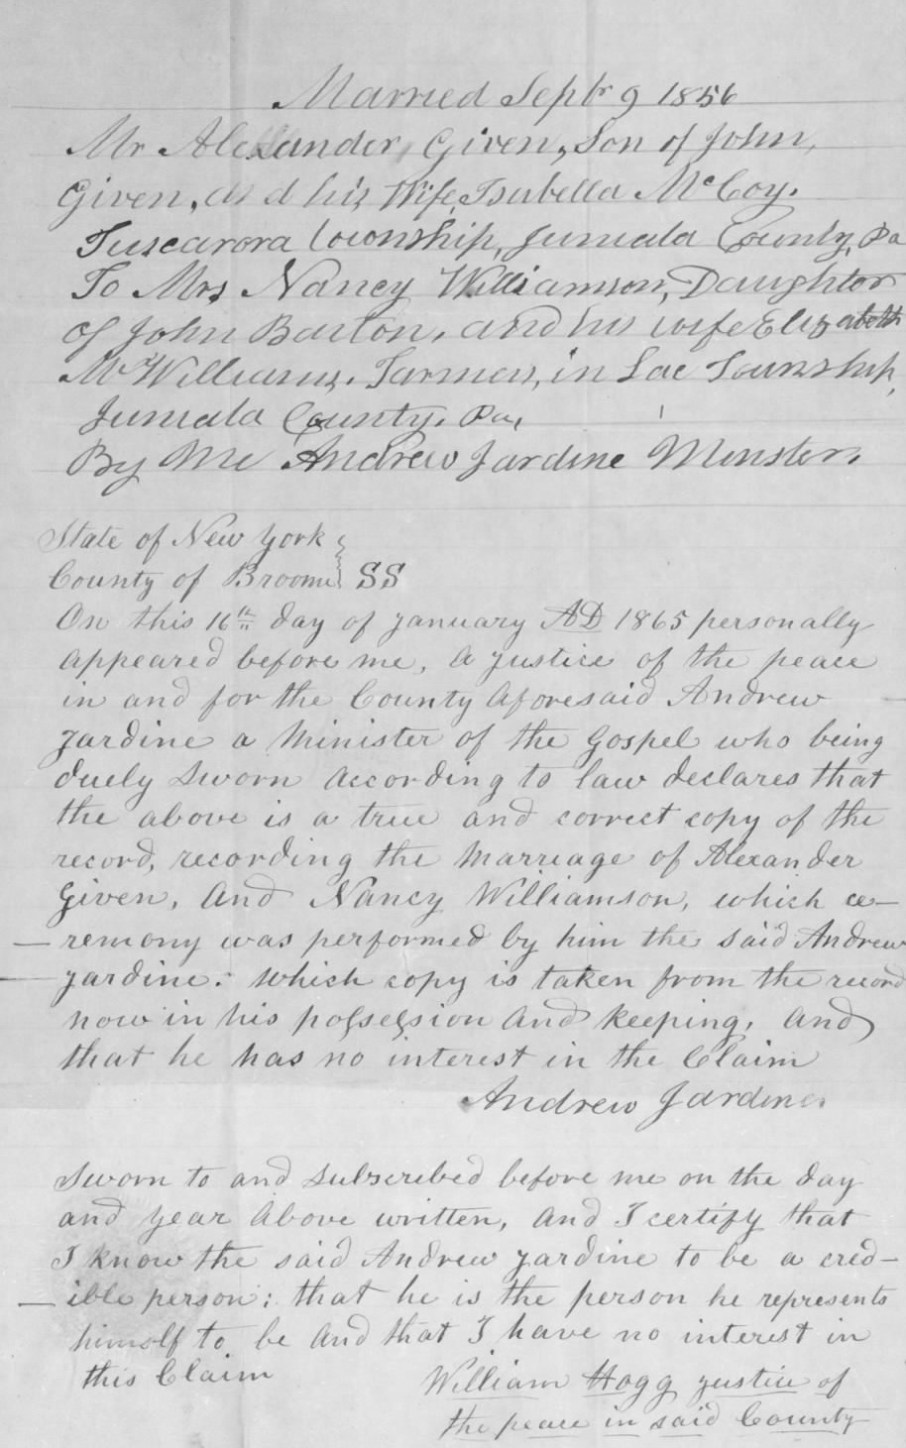 Married Septr 9 1856
Mr Alexander, Given, Son of John,
Given, and his Wife, Isabella McCoy.
Tuscarora township, Juniata County, Pa
To Mrs Nancy Williamson, Daughter
of John Barton, and his wife Elizabeth
McWilliams. Farmer, in Lac Township,
Juniata County. Pa,
By Me Andrew Jardine Minster.
State of New York }
County of Broome } SS
On this 16th day of January AD 1865 personally
appeared before me, a Justice of the peace
in and for the County aforesaid Andrew
Jardine a Minister of the Gospel who being
duely sworn according to law declares that
the above is a true and correct copy of the
record, recording the Marriage of Alexander
Given, And Nancy Williamson, which ce-
- remony was performed by him the said Andrew
- Jardine: Which copy is taken from the record
now in his possession And keeping, And
that he has no interest in the Claim
Andrew Jardine.
Sworn to and subscribed before me on the day
and year above written, And I certify that
I know the said Andrew Jardine to be a cred-
- ible person: that he is the person he represents
himself to be And that I have no interest in
this Claim
William Hogg Justice of
the peace in said County